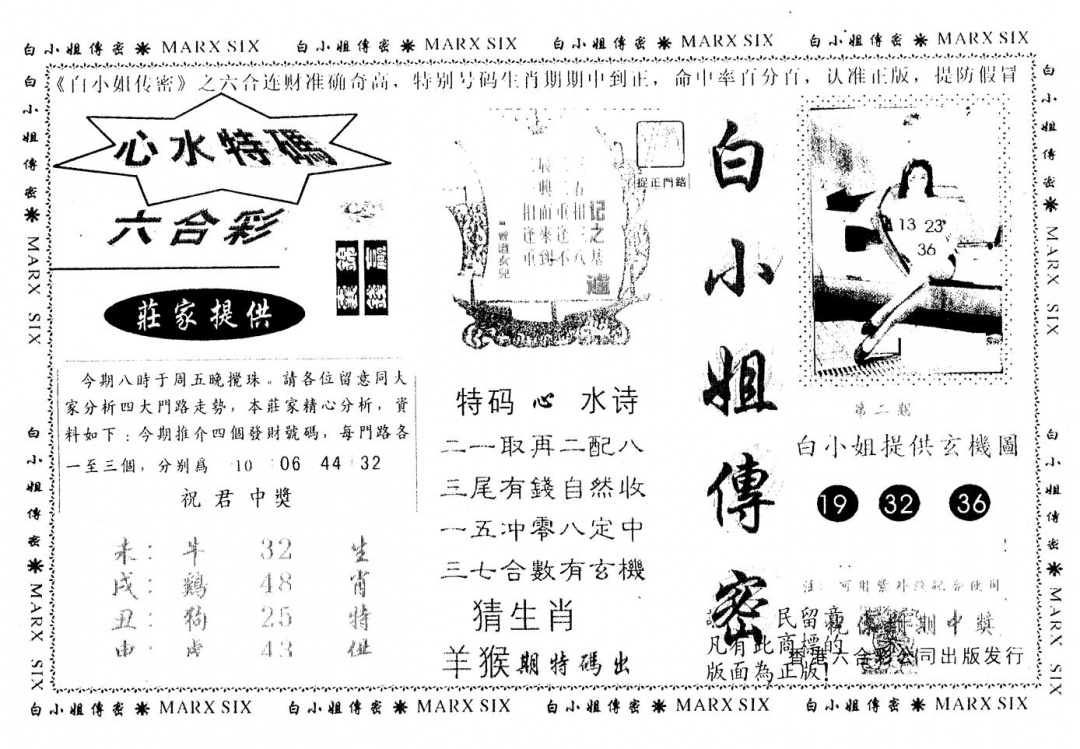 白小姐傳密 ✷ MARX SIX 白小姐傳密 ✷ MARX SIX 白小姐傳密 ✷ MARX SIX 白小姐傳密 ✷ MARX SIX
《白小姐传密》之六合连财准确奇高，特别号码生肖期期中到正，命中率百分百，认准正版，提防假冒
白小姐傳密 ✷ MARX SIX
白小姐傳密 ✷ MARX SIX
心水特碼
六合彩
莊家提供
今期八時于周五晚攪珠。請各位留意同大
家分析四大門路走勢，本莊家精心分析，資
料如下：今期推介四個發財號碼，每門路各
一至三個，分别爲 10 06 44 32
祝君中獎
未：牛 32 生
戌：鷄 48 肖
丑：狗 25 特
申：虎 43 供
捉正門路
记之基
相三八
重逢不
面來到
相逢重
曾道女兒
特码心水诗
二一取再二配八
三尾有錢自然收
一五冲零八定中
三七合數有玄機
猜生肖
羊猴期特碼出
白小姐傳密
13 23
36
第二期
白小姐提供玄機圖
19 32 36
注：可用紫外线配合使用
祝你期期中獎
民留意
凡有此商標的
版面為正版！
香港六合彩公司出版发行
白小姐傳密 ✷ MARX SIX
白小姐傳密 ✷ MARX SIX
白小姐傳密 ✷ MARX SIX 白小姐傳密 ✷ MARX SIX 白小姐傳密 ✷ MARX SIX 白小姐傳密 ✷ MARX SIX